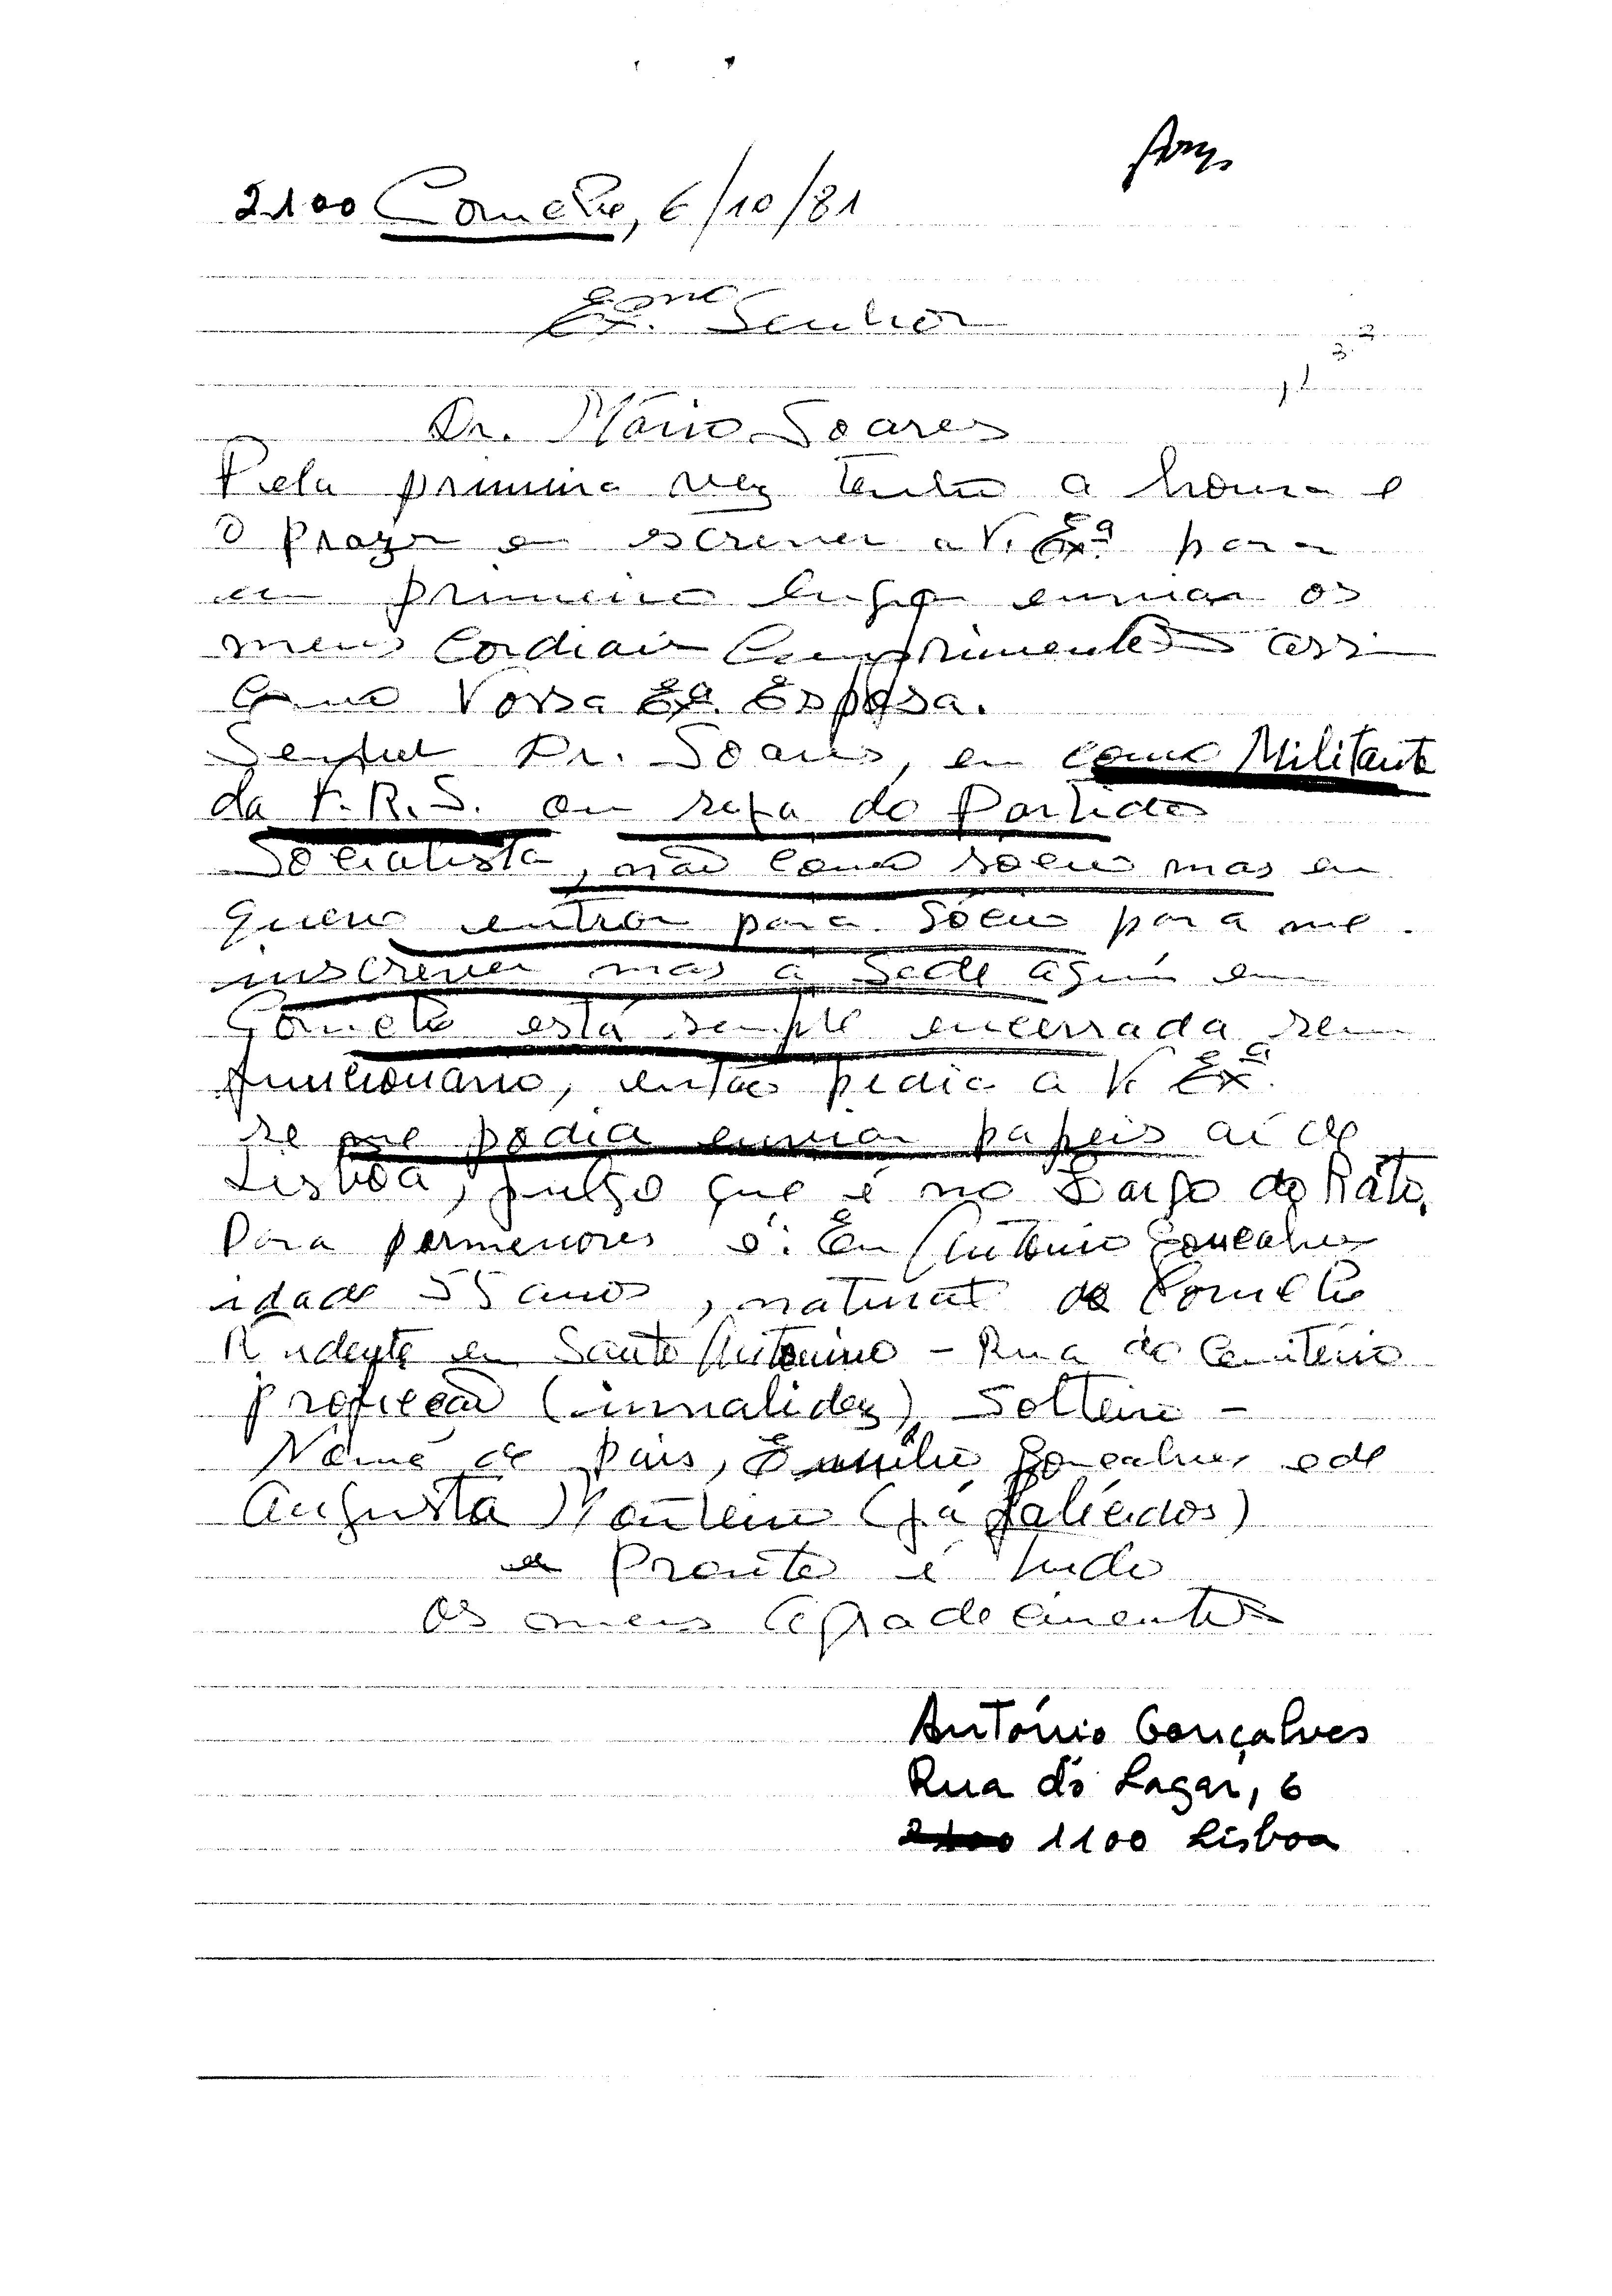 Arq.
2100 Coruche, 6/10/81
Exmo. Senhor
Dr. Mário Soares
Pela primeira vez tenho a honra e
o prazer em escrever a V. Exª para
em primeiro lugar enviar os
meus cordiais cumprimentos assim
como Vossa Exª. Esposa.
Senhor Dr. Soares, eu como Militante
da F.R.S. ou seja do Partido
Socialista, não como sócio mas eu
quero entrar para sócio para me
inscrever mas a sede aqui em
Coruche está sempre encerrada sem
funcionário, então pedia a V. Exª.
se me podia enviar papeis aí de
Lisboa, julgo que é no Largo do Ráto,
Para permenores é: Eu António Gonçalves
idade 55 anos, natural de Coruche
Residente em Santo Antonino - Rua do Cemitério
profiecão (invalidez) Solteiro -
Nome de pais, Emílio Gonçalves e de
Augusta Monteiro (já falicidos)
e Pronto é tudo
os meus agradecimentos
António Gonçalves
Rua do Lagar, 6
2100 1100 Lisboa